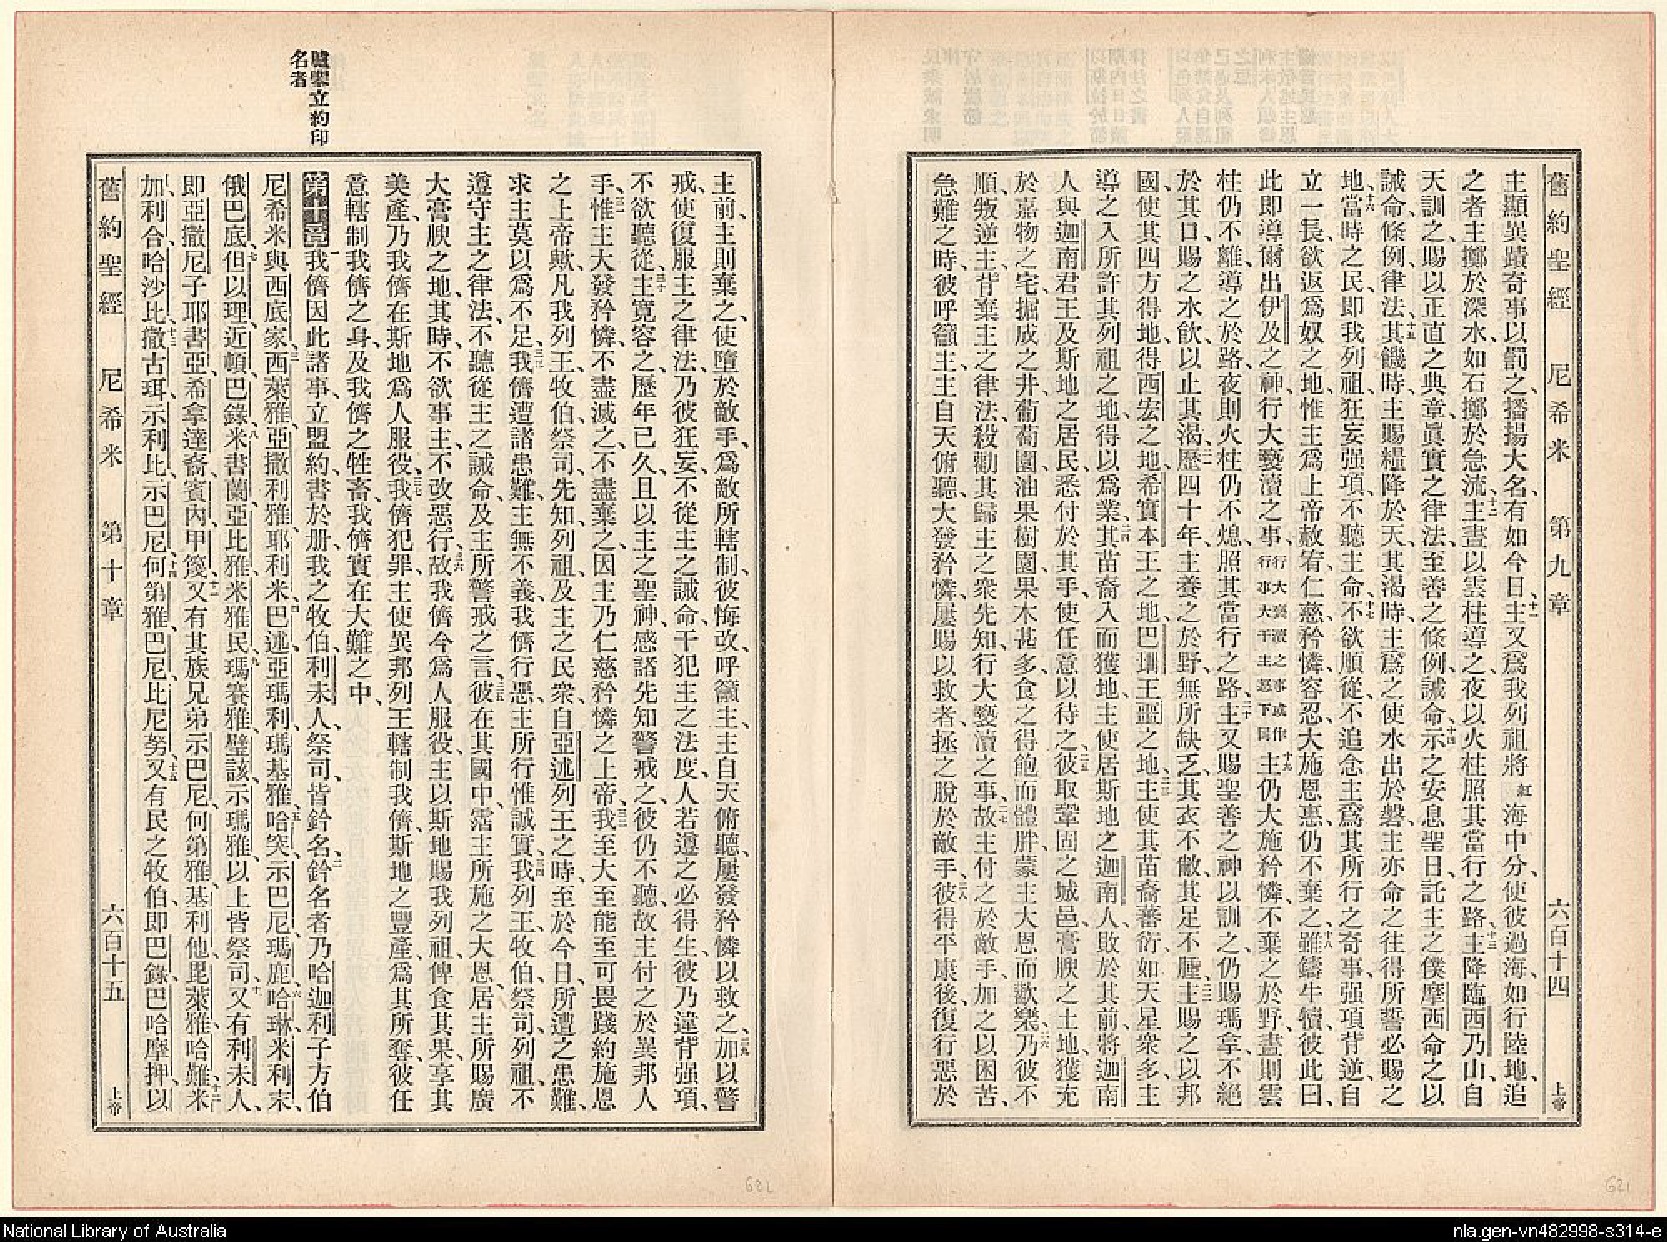 舊約聖經 尼希米 第九章 六百十四 上帝
主顯異蹟奇事以罰之、播揚大名、有如今日、十一主又爲我列祖將紅海中分、使彼過海、如行陸地、追
之者主擲於深水、如石擲於急流、十二主晝以雲柱導之、夜以火柱照其當行之路、十三主降臨西乃山、自
天訓之、賜以正直之典章、眞實之律法、至善之條例誡命、十四示之安息聖日、託主之僕摩西命之以
誡命、條例、律法、十五其饑時、主賜糧降於天、其渴時、主爲之使水出於磐、主亦命之往得所誓必賜之
地、十六當時之民、即我列祖、狂妄强項、不聽主命、十七不欲順從、不追念主爲其所行之奇事、强項背逆、自
立一長、欲返爲奴之地、惟主爲上帝、赦宥仁慈矜憐、容忍、大施恩惠、仍不棄之、十八雖鑄牛犢、彼此曰、
此即導爾出伊及之神、行大褻瀆之事、行大褻瀆之事或作行事大干主怒下同十九主仍大施矜憐、不棄之於野、晝則雲
柱仍不離、導之於路、夜則火柱仍不熄、照其當行之路、二十主又賜聖善之神以訓之、仍賜瑪拿、不絕
於其口、賜之水飲、以止其渴、二一歷四十年、主養之於野、無所缺乏、其衣不敝、其足不腫、二二主賜之以邦
國、使其四方得地、得西宏之地、希實本王之地、巴珊王噩之地、二三主使其苗裔蕃衍、如天星衆多、主
導之入所許其列祖之地、得以爲業、二四其苗裔入而獲地、主使居斯地之迦南人、敗於其前、將迦南
人與迦南君王、及斯地之居民、悉付於其手、使任意以待之、二五彼取鞏固之城邑、膏腴之土地、獲充
於嘉物之宅、掘成之井、葡萄園、油果樹園、果木甚多、食之得飽而體胖、蒙主大恩而歡樂、二六乃彼不
順、叛逆主、背棄主之律法、殺勸其歸主之衆先知、行大褻瀆之事、二七故主付之於敵手、加之以困苦、
急難之時、彼呼籲主、主自天俯聽、大發矜憐、屢賜以救者、拯之脫於敵手、二八彼得平康後、復行惡於
臚擧立約印
名者
主前、主則棄之、使墮於敵手、爲敵所轄制、彼悔改呼籲主、主自天俯聽、屢發矜憐以救之、二九加以警
戒、使復服主之律法、乃彼狂妄、不從主之誡命、干犯主之法度、人若遵之必得生、彼乃違背强項、
不欲聽從、三十主寬容之、歷年已久、且以主之聖神、感諸先知警戒之、彼仍不聽、故主付之於異邦人
手、三一惟主大發矜憐、不盡滅之、不盡棄之、因主乃仁慈矜憐之上帝、三二我至大至能至可畏踐約施恩
之上帝歟、凡我列王、牧伯、祭司、先知、列祖、及主之民衆、自亞述列王之時、至於今日、所遭之患難、
求主莫以爲不足、三三我儕遭諸患難、主無不義、我儕行惡、主所行惟誠實、三四我列王、牧伯、祭司、列祖、不
遵守主之律法、不聽從主之誡命、及主所警戒之言、三五彼在其國中、霑主所施之大恩、居主所賜廣
大膏腴之地、其時、不欲事主、不改惡行、三六故我儕今爲人服役、主以斯地賜我列祖、俾食其果、享其
美產、乃我儕在斯地爲人服役、三七我儕犯罪、主使異邦列王轄制我儕、斯地之豐產、爲其所奪、彼任
意轄制我儕之身、及我儕之牲畜、我儕實在大難之中、
第十章 一我儕因此諸事、立盟約書於册、我之牧伯、利未人、祭司、皆鈐名、二鈐名者乃哈迦利子方伯
尼希米、與西底家、三西萊雅、亞撒利雅、耶利米、巴述、亞瑪利、瑪基雅、哈突、示巴尼、瑪鹿、哈琳、米利末、
俄巴底、但以理、近頓、巴錄、米書蘭、亞比雅、米雅民、瑪賽雅、璧該、示瑪雅、以上皆祭司、又有利未人、
即亞撒尼子耶書亞、希拿達裔賓內、甲篾、又有其族兄弟示巴尼、何第雅、基利他、毘萊雅、哈難、米
加、利合、哈沙比、撒古珥、示利比、示巴尼、何第雅、巴尼、比尼努、又有民之牧伯、即巴錄、巴哈摩押、以
舊約聖經 尼希米 第十章 六百十五 上帝
621
National Library of Australia
nla.gen-vn482998-s314-e